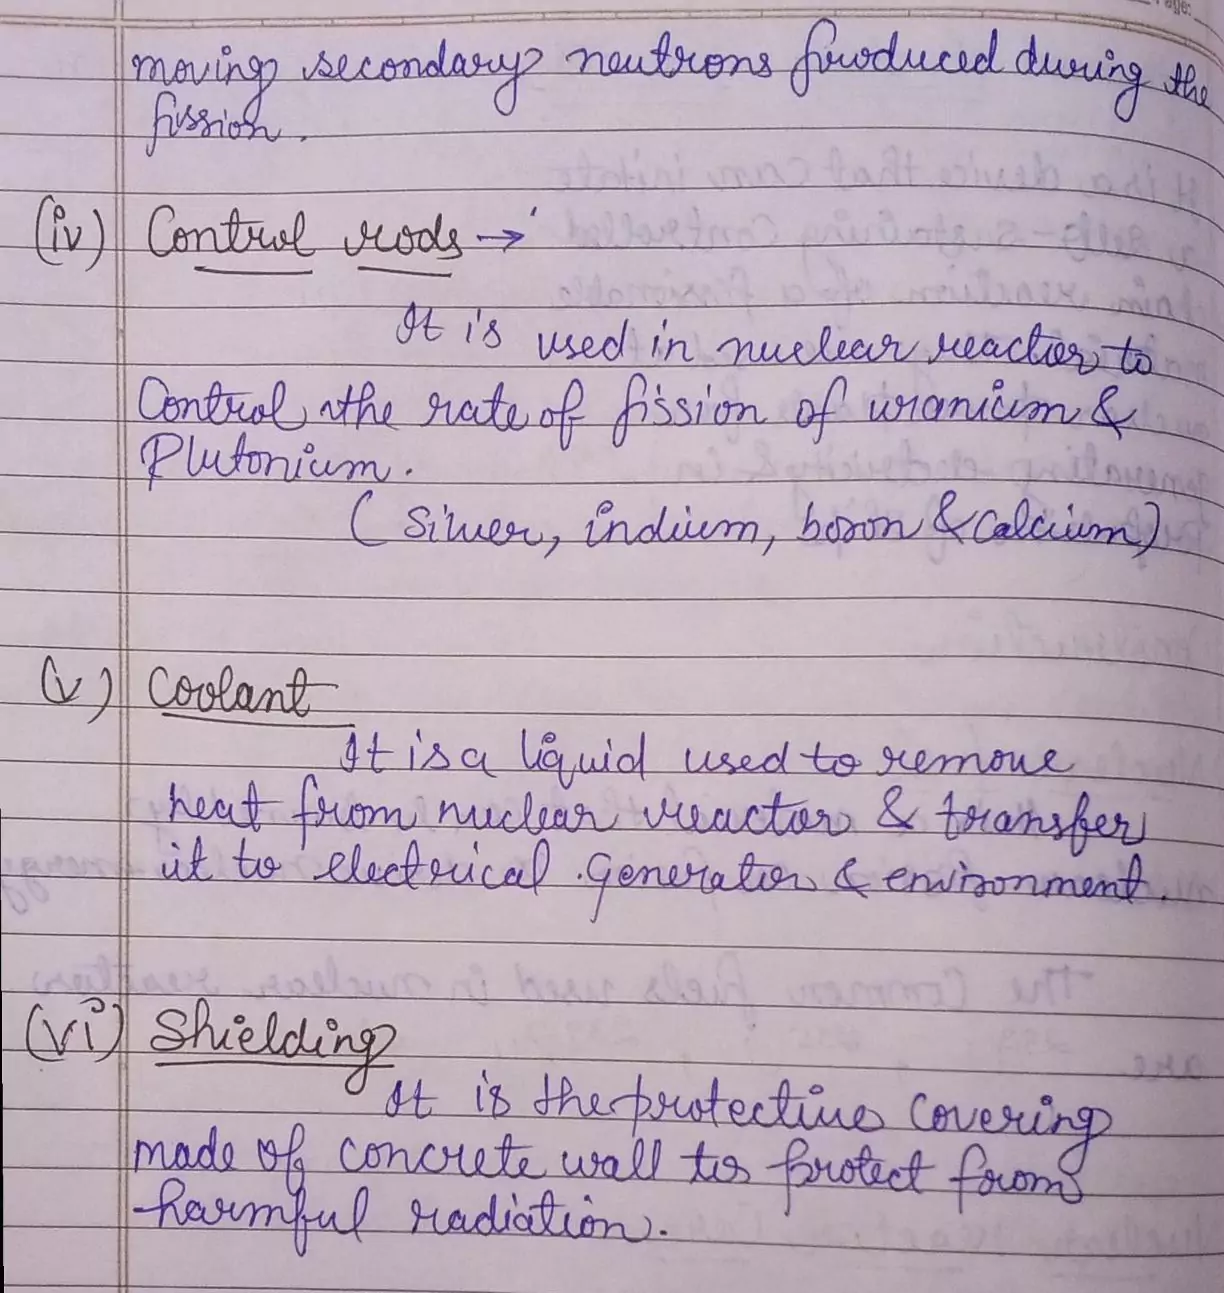 moving secondary neutrons produced during the
fission.
(iv) Control rods →
It is used in nuclear reactor to
Control the rate of fission of uranium &
Plutonium.
(Silver, indium, boron & Calcium)
(v) Coolant
It is a liquid used to remove
heat from nuclear reactor & transfer
it to electrical generator & environment.
(vi) Shielding
It is the protective covering
made of concrete wall to protect from
harmful radiation.